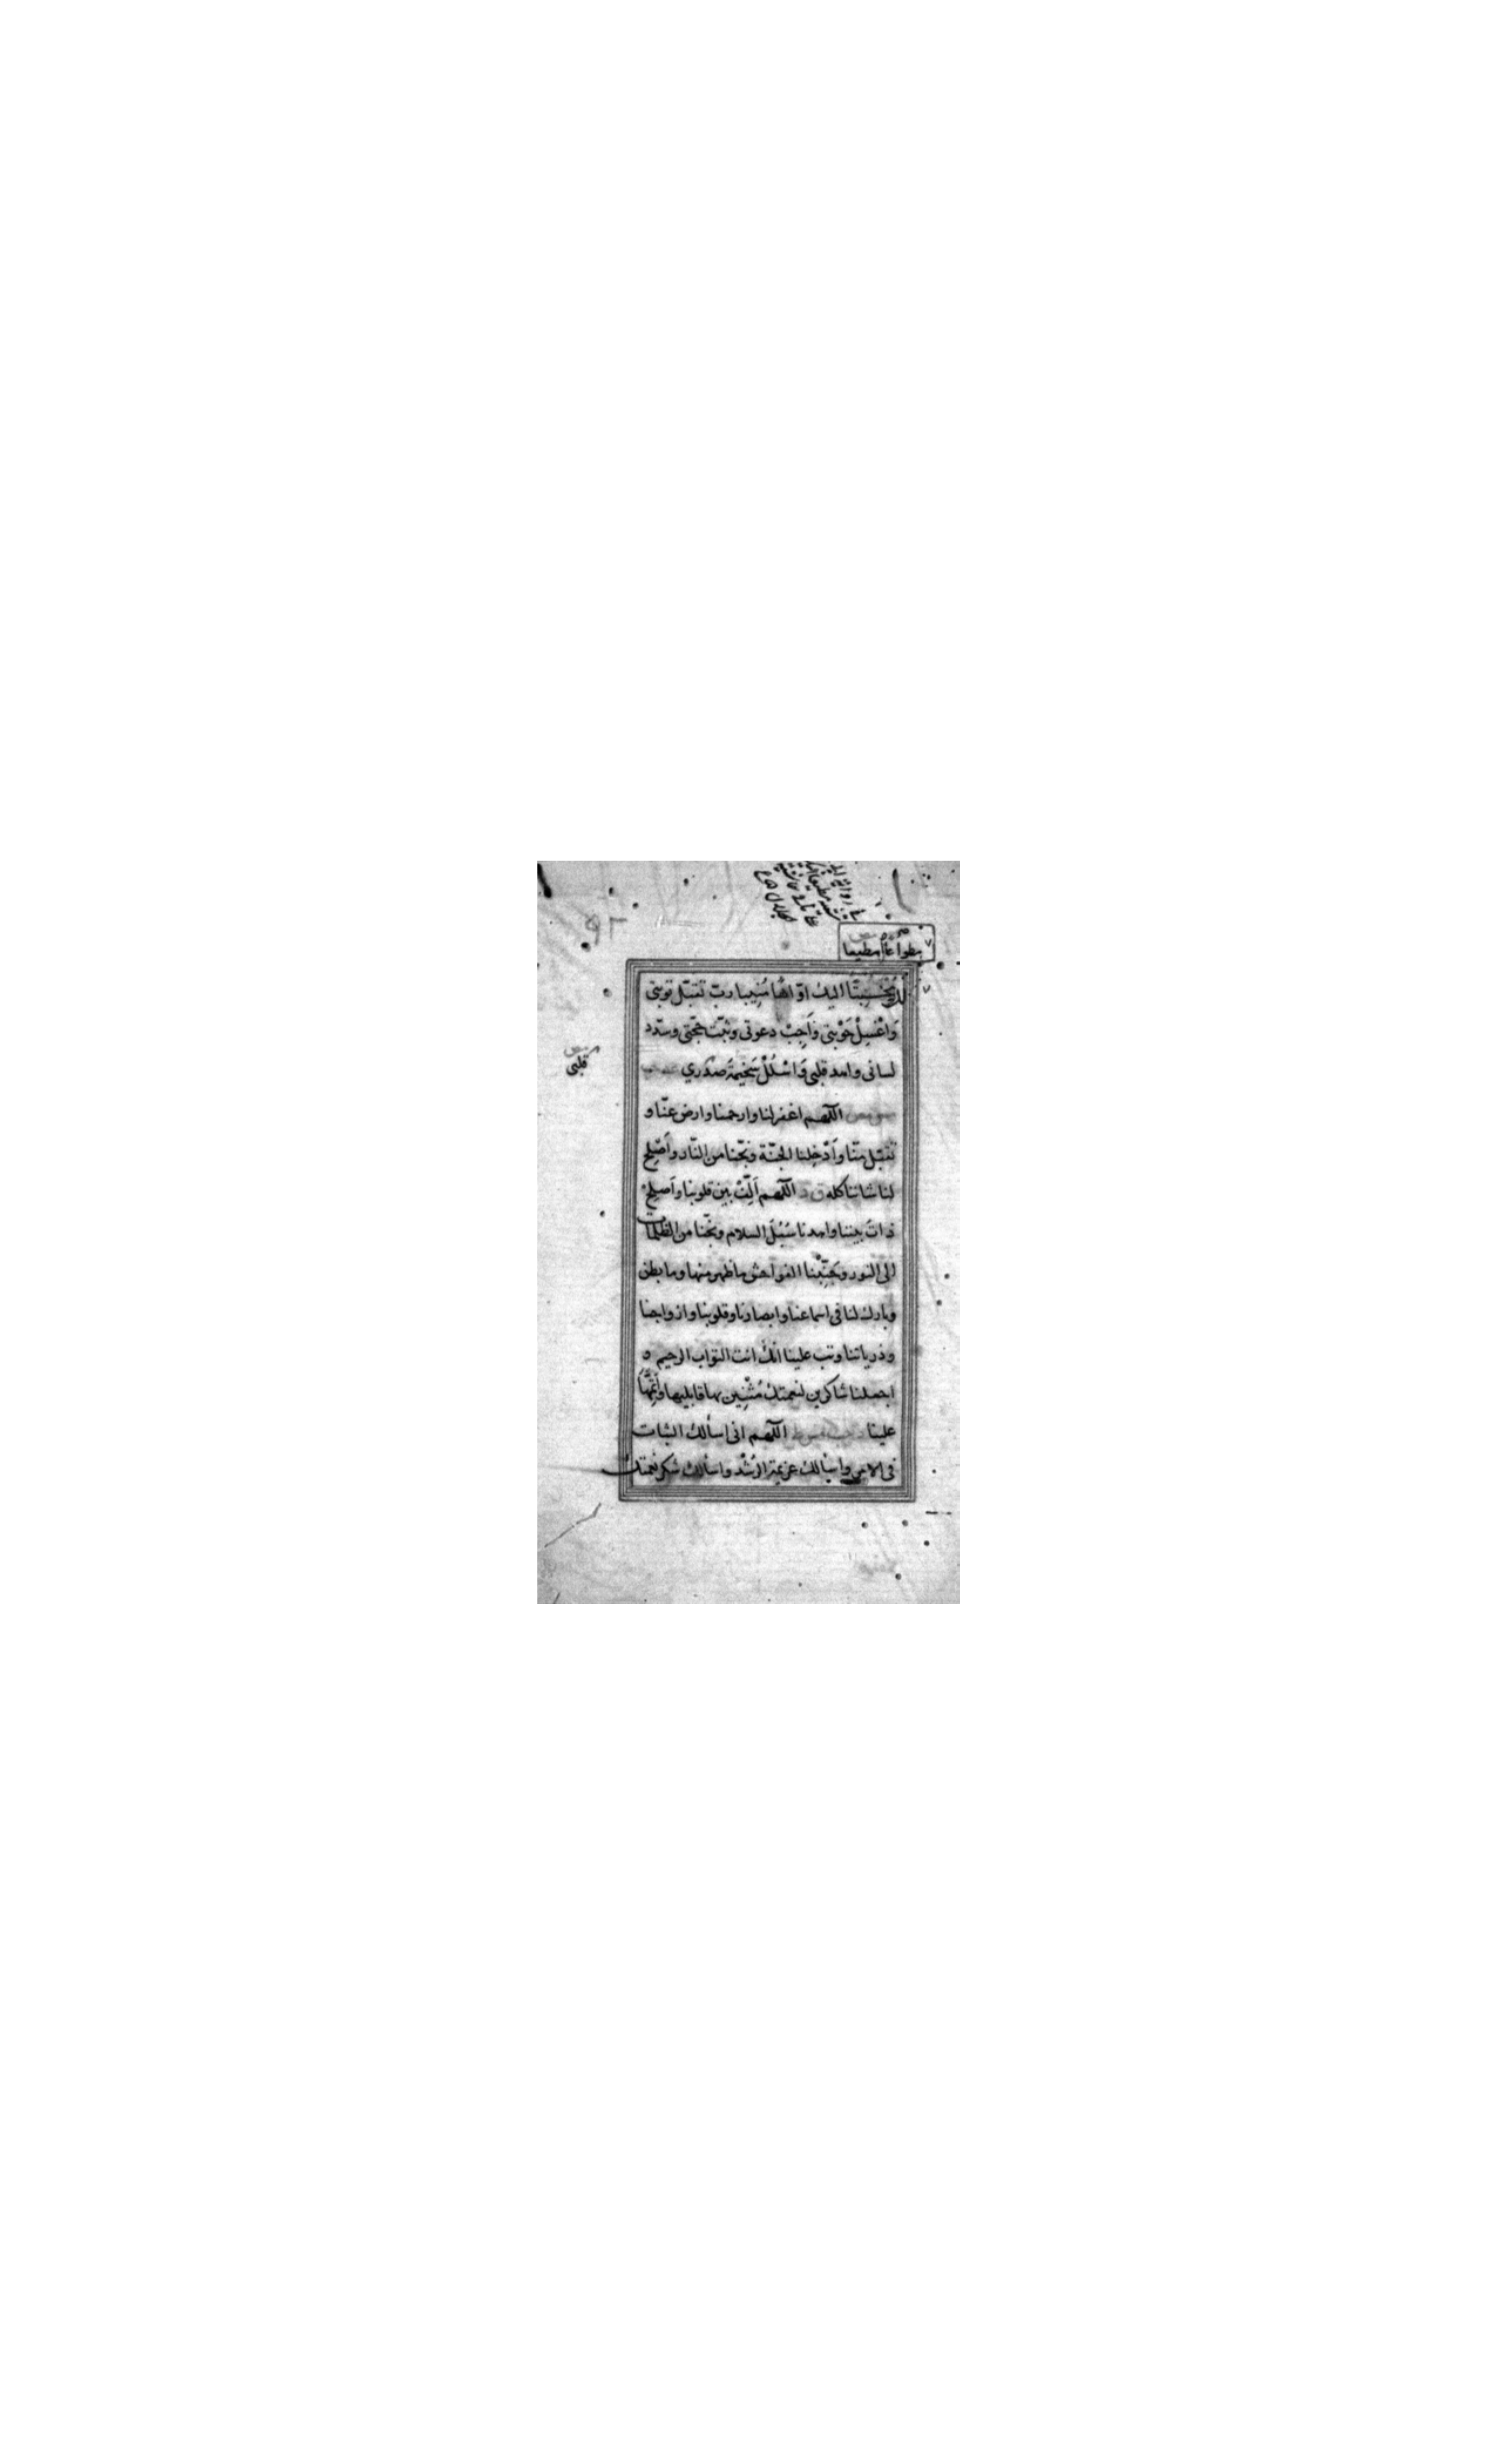 مطواعا مطيعا
لك مخبتا اليك اوّاها مُنيبا ربّ تقبّل توبتى
وَاغْسِلْ حَوْبتى وَاَجِبْ دعوتى وثبّت حُجّتى وسدّد
لسانى واهد قلبى وَاسْلُلْ سَخِيمَةَ صَدْرِي
اللّهم اغفر لنا وارحمنا وارض عنّا و
تقبّل منّا وَاَدْخِلنا الجنّة ونجّنا من النّار واَصْلِح
لنا شاننا كله ق د اللّهم اَلِّفْ بين قلوبنا واَصلِحْ
ذاتَ بيننا واهدنا سُبُلَ السلام ونجّنا من الظلمات
الى النور وجَنِّبْنا الفواحش ما ظهر منها وما بطن
وبارك لنا فى اسماعنا وابصارنا وقلوبنا وازواجنا
وذرياتنا وتب علينا انّك انت التوّاب الرحيم ه
اجعلنا شاكرين لنعمتك مُثْنِين بها قابليها واَتِمَّها
علينا اللّهم انى اسألك الثبات
فى الامر واسألك عزيمة الرُشْد واسألك شكر نعمتك
قلبى